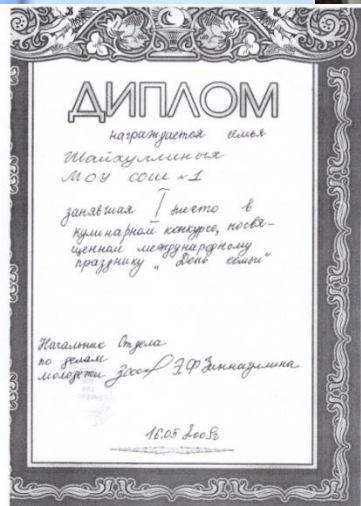 ДИПЛОМ
награждается семья
Шайхуллиных
МОУ СОШ №1
занявшая I место в
кулинарном конкурсе, посвя-
щенном международному
празднику „День семьи"
Начальник Отдела
по делам
молодежи Э.Ф Зиннатуллина
16.05